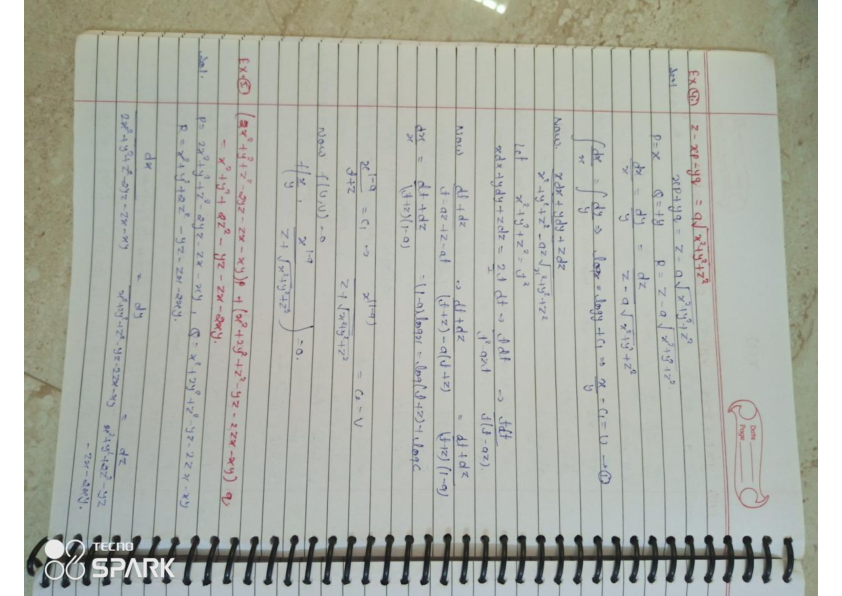 Date
Page
Ex-(4) z - xp + yq = a√x²+y²+z²
Sol. xp + yq = z - a√x²+y²+z²
P = x Q = +y R = z - a√x²+y²+z²
dx/x = dy/y = dz/z - a√x²+y²+z²
∫dx/x = ∫dy/y ⇒ logx = logy + c₁ ⇒ x/y = c₁ = u → ①
Now xdx + ydy + zdz / x²+y²+z² - az√x²+y²+z²
Let x²+y²+z² = t²
xdx + ydy + zdz = 2t dt/2 ⇒ t dt / t² - azt ⇒ tdt / t(t - az)
Now dt + dz / t - az + z - at ⇒ dt + dz / (t+z) - a(t+z) = dt + dz / (t+z)(1-a)
dx/x = dt + dz / (t+z)(1-a) = (1-a) logx = log(t+z) + logc
x^(1-a) / t+z = c₁ ⇒ x^(1-a) / z + √x²+y²+z² = c₂ = v
Now f(u,v) = 0
f(x/y, x^(1-a) / z + √x²+y²+z²) = 0.
Ex-(5) (2x²+y²+z²-2yz-zx-xy)p + (x²+2y²+z²-yz-2zx-xy)q
= x²+y²+2z²-yz-zx-2xy.
Sol. P = 2x²+y²+z²-2yz-zx-xy, Q = x²+2y²+z²-yz-2zx-xy
R = x²+y²+2z²-yz-zx-2xy.
dx / 2x²+y²+z²-2yz-zx-xy = dy / x²+2y²+z²-yz-2zx-xy = dz / x²+y²+2z²-yz
-zx-2xy.
TECNO
SPARK